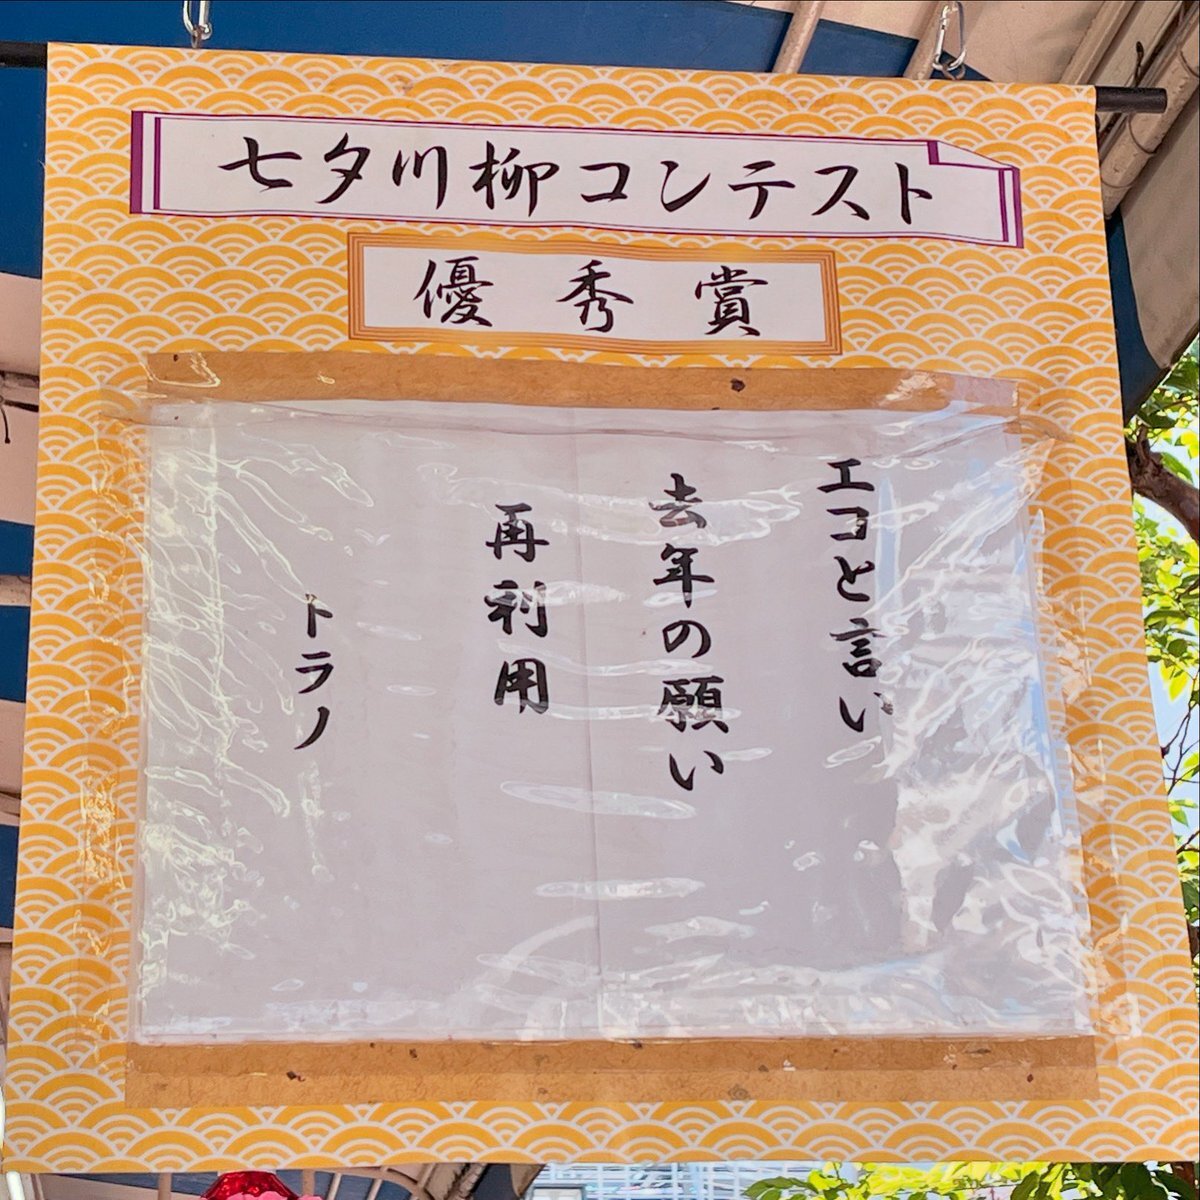 七夕川柳コンテスト
優秀賞
エコと言い
去年の願い
再利用
トラノ